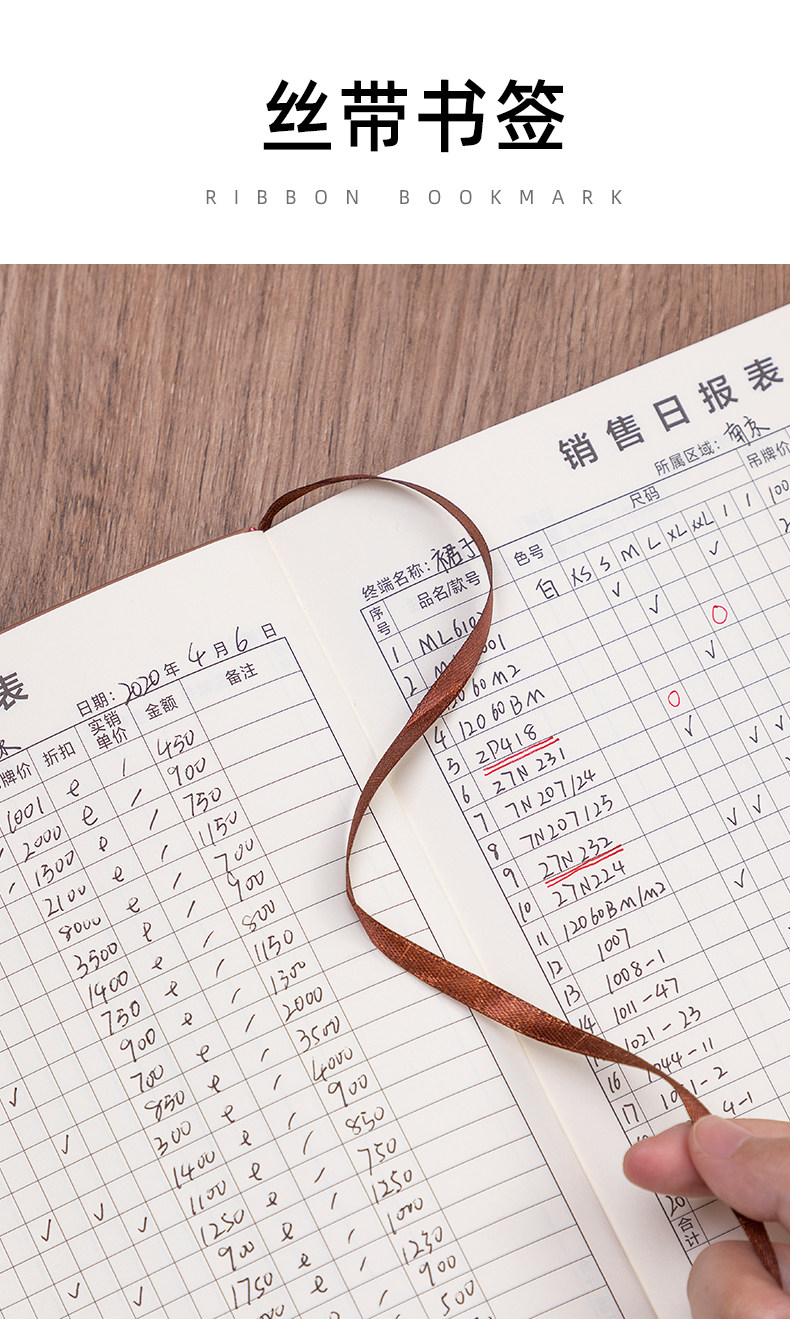 丝带书签
RIBBON BOOKMARK
表
日期: 2020 年 4 月 6 日
牌价 折扣 实销单价 金额 备注
1001 / 450
2000 / 900
1300 / 750
2100 / 1150
8000 / 700
3500 / 900
1400 / 800
750 / 1150
900 / 1300
700 / 2000
850 / 3500
300 / 4000
1400 / 900
1100 / 850
1250 / 750
900 / 1250
1750 / 1000
1230
900
500
销售日报表
所属区域: 南京
终端名称: 裙子
序号 品名/款号 色号 尺码 吊牌价
白 XS S M L XL XXL 1 1 100
1 ML610
2 M 001
2060 M2
4 12060BM
5 ZP418
6 27N 231
7 7N 207/24
8 7N207/25
9 27N 232
10 27N224
11 12060BM/M2
12 1007
13 1008-1
14 1011-47
1021-23
16 1044-11
17 10 1-2
4-1
20
合计